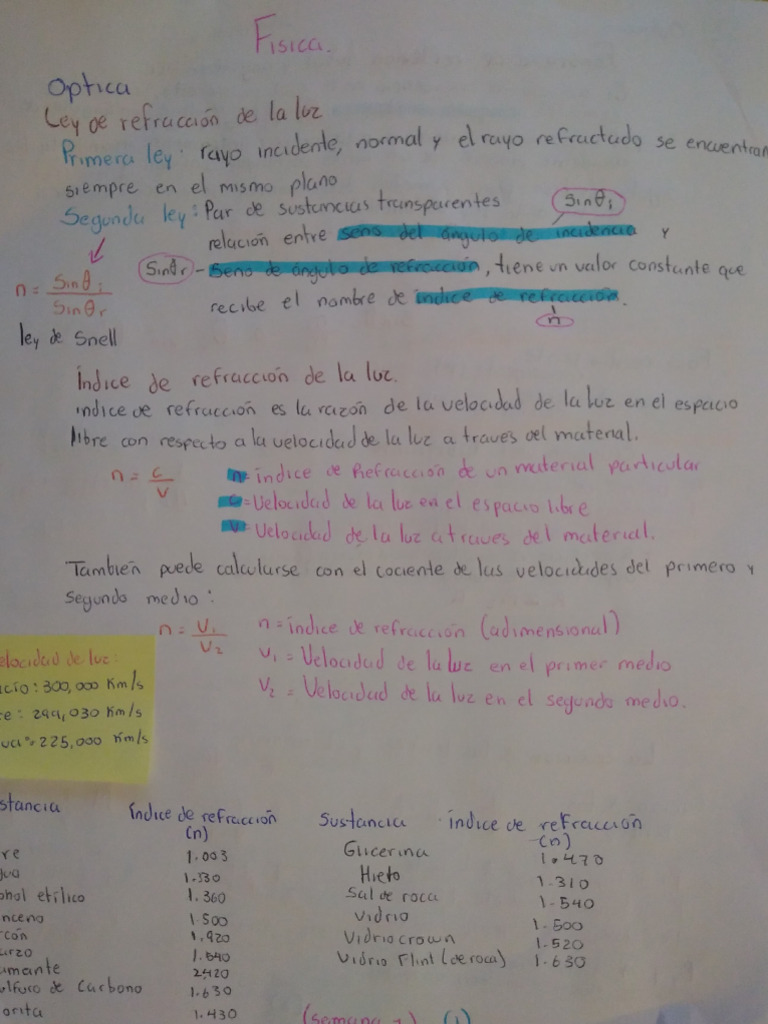 Fisica.
Optica
Ley de refracción de la luz
Primera ley: rayo incidente, normal y el rayo refractado se encuentran
siempre en el mismo plano
Segunda ley: Par de sustancias transparentes
Sinθi
relación entre seno del ángulo de incidencia y
Sinθr - Seno de ángulo de refracción, tiene un valor constante que
recibe el nombre de índice de refracción.
n
n = Sinθi / Sinθr
ley de Snell
Índice de refracción de la luz.
indice de refracción es la razón de la velocidad de la luz en el espacio
libre con respecto a la velocidad de la luz a traves del material.
n = c / v
n = índice de Refracción de un material particular
c = Velocidad de la luz en el espacio libre
v = Velocidad de la luz a traves del material.
También puede calcularse con el cociente de las velocidades del primero y
segundo medio:
n = V1 / V2
n = índice de refracción (adimensional)
V1 = Velocidad de la luz en el primer medio
V2 = Velocidad de la luz en el segundo medio.
elocidad de luz:
cío: 300,000 Km/s
e: 299,030 Km/s
ua: 225,000 Km/s
stancia Índice de refracción (n) Sustancia índice de refracción (n)
re 1.003 Glicerina 1.470
gua 1.330 Hielo 1.310
ohol etílico 1.360 Sal de roca 1.540
nceno 1.500 Vidrio 1.500
rcón 1.920 Vidrio crown 1.520
arzo 1.540 Vidrio Flint (de roca) 1.630
amante 2420
lfuro de Carbono 1.630
orita 1.430
(semana 7) (1)